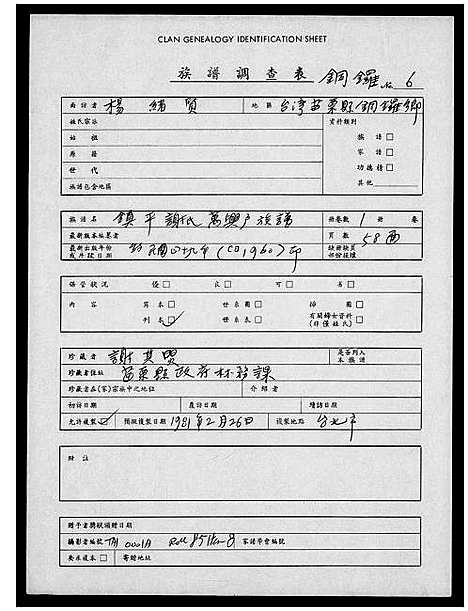 CLAN GENEALOGY IDENTIFICATION SHEET
族譜調查表 銅鑼 No. 6
面訪者 楊緒賢 地區 台灣苗栗縣銅鑼鄉
姓氏宗派 資料類別
始祖 族譜 □
原籍 家譜 □
世代 功德榜 □
族譜包含地區 其他
族譜名 鎮平謝氏萬興戶族譜 冊卷數 1 冊 卷
最新版本編纂者 頁數 58面
最新出版年份或片段日期 民國四九年 (1960) 印 缺冊缺頁部份程樣
保管狀況 優 □ 良 □ 可 □ 劣 □
內容 寫本 □ 世系圖 □ 插圖 □
刊本 □ 世系表 □ 有關婦女資料(非僅姓氏) □
珍藏者 謝其 是否列入本族譜
珍藏者住址 苗栗縣政府林務課
珍藏者在(家)宗族中之地位 介紹者
初訪日期  復訪日期 增訪日期
允許複製 預擬複製日期 1981年2月26日 複製地點 台北市
附註
贈予者獎狀頒贈日期
攝影者編號 TN 0001A Roll 85 Item 8 家譜學會編號
要求複本 □ 寄贈地址